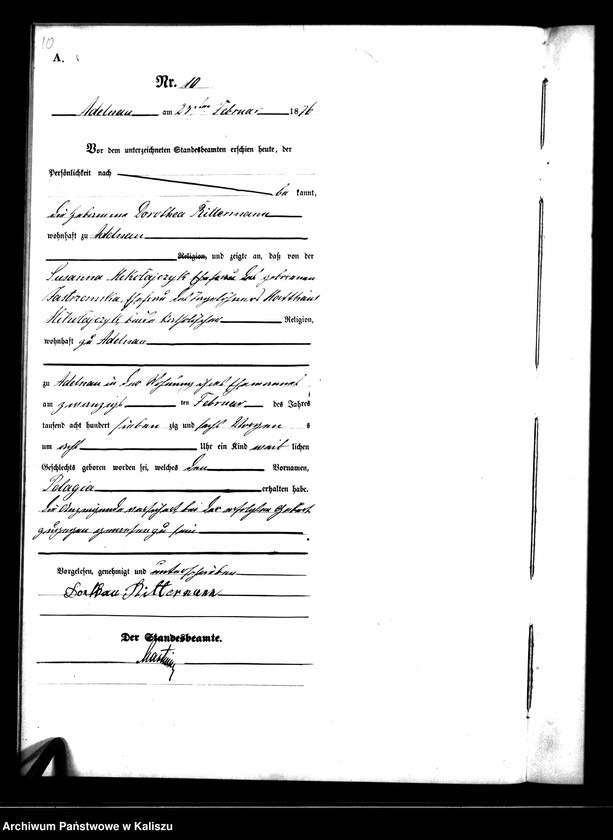 10
A.
Nr. 10
Adelnau am 21ten Februar 1876
Vor dem unterzeichneten Standesbeamten erschien heute, der
Persönlichkeit nach
be kannt,
die Hebamme Dorothea Bittermann
wohnhaft zu Adelnau
Religion, und zeigte an, daß von der
Susanna Mikołajczyk geborenen
Jastrzemska, Ehefrau des Matthäus
Mikołajczyk, beide katholischer Religion,
wohnhaft zu Adelnau
zu Adelnau in der Wohnung ihres Ehemannes
am zwanzigst ten Februar des Jahres
tausend acht hundert sieben zig und sechs Morgens
um acht Uhr ein Kind weib lichen
Geschlechts geboren worden sei, welches den Vornamen,
Pelagia erhalten habe.
Die Anzeigende versichert bei der erfolgten Geburt
zugegen gewesen zu sein
Vorgelesen, genehmigt und unterschrieben
Bittermann
Der Standesbeamte.
Archiwum Państwowe w Kaliszu